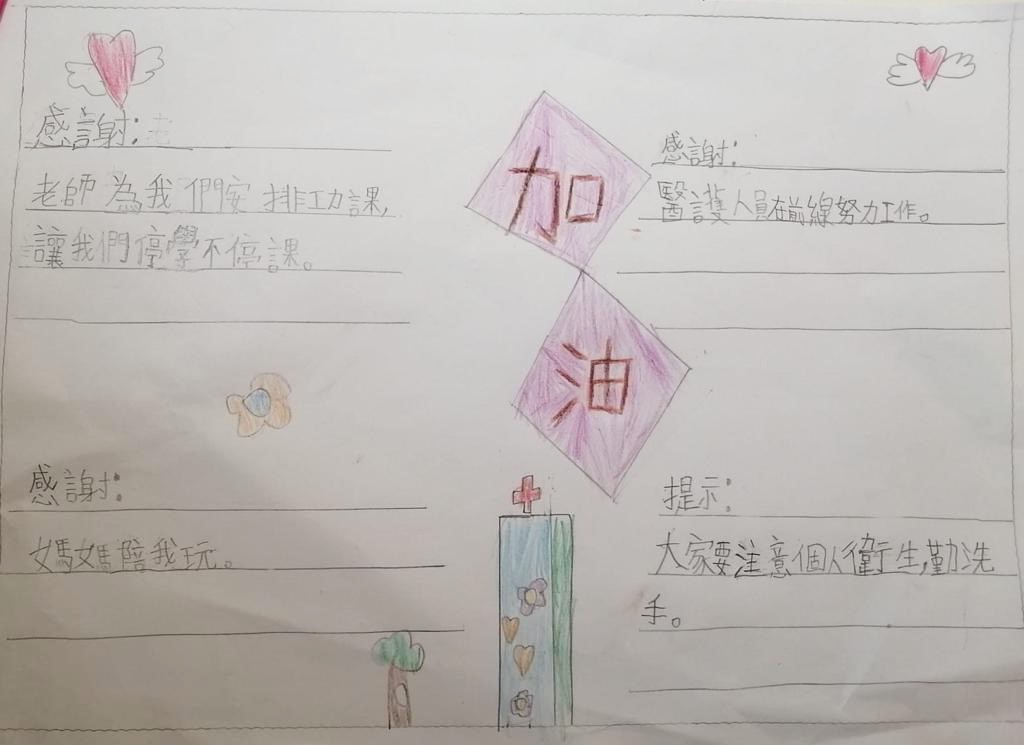 感謝:
老師為我們安排功課,
讓我們停學不停課。
加
油
感謝:
醫護人員在前線努力工作。
感謝:
媽媽陪我玩。
提示:
大家要注意個人衛生,勤洗
手。